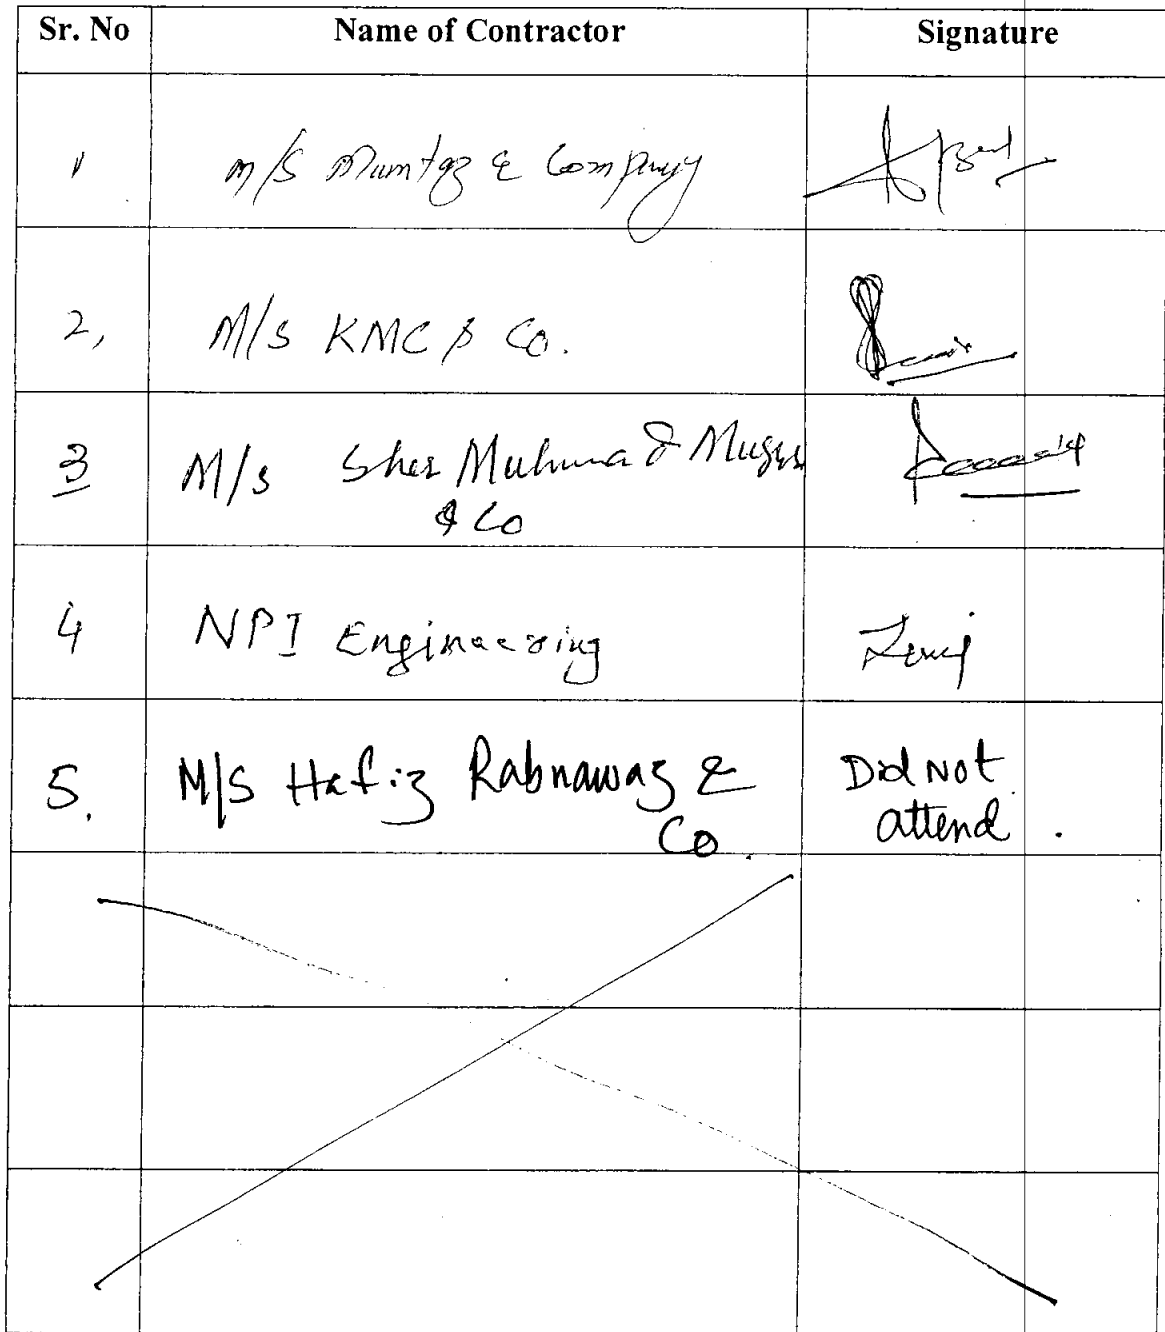 Sr. No Name of Contractor Signature
1 M/S Mumtaz & Company
2, M/S KMC & Co.
3 M/s Sher Muhmad
& Co
4 NPI Engineering
5. M/S Hafiz Rabnawaz & Did Not
Co. attend.